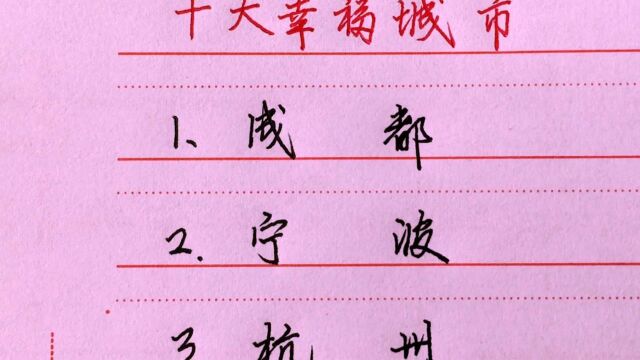 十大幸福城市
1、成都
2.宁波
3.杭州